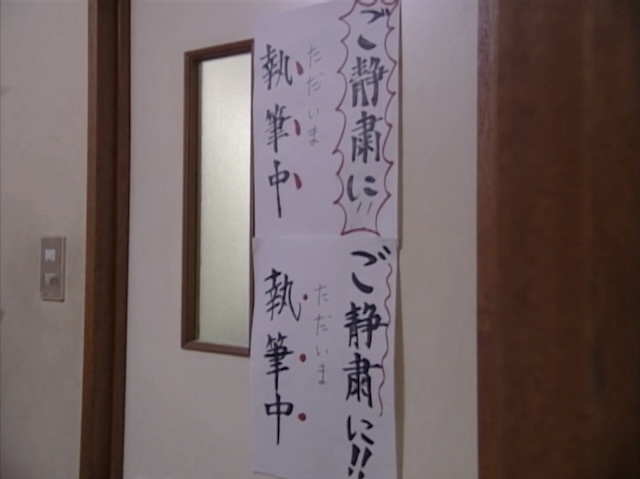 ご静粛に!!
ただいま
執筆中
ご静粛に!!
ただいま
執筆中